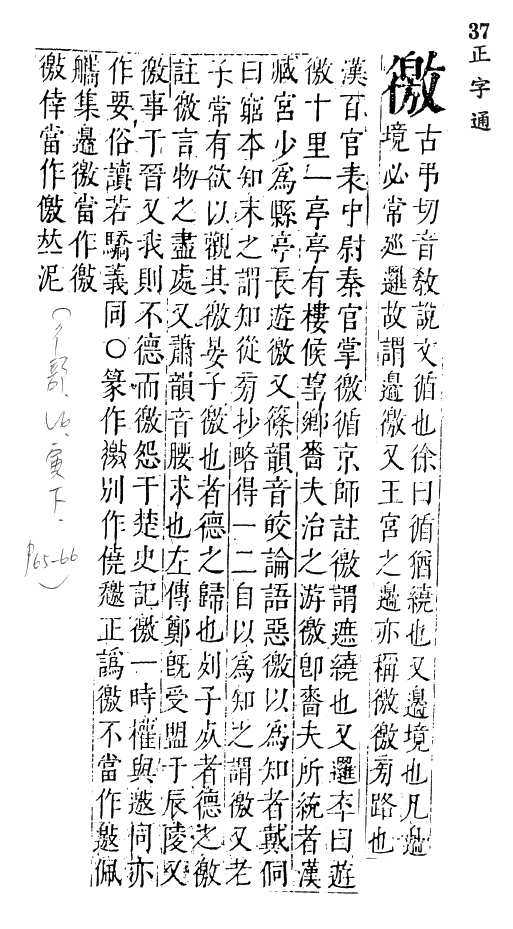 37 正字通
徼
古弔切音敎說文循也徐曰循猶繞也又邊境也凡邊
境必常廵邏故謂邊徼又王宮之邊亦稱徼徼旁路也
漢百官表中尉秦官掌徼循京師註徼謂遮繞也又邏卒曰遊
徼十里一亭亭有樓候望鄉嗇夫治之游徼卽嗇夫所統者漢
臧宮少爲縣亭長遊徼又篠韻音皎論語惡徼以爲知者戴侗
曰窮本知末之謂知從旁抄略得一二自以爲知之謂徼又老
子常有欲以觀其徼晏子徼也者德之歸也列子死者德之徼
註徼言物之盡處又蕭韻音腰求也左傳鄭旣受盟于辰陵又
徼事于晉又我則不德而徼怨于楚史記徼一時權與邀同亦
作要俗讀若驕義同〇篆作徼別作僥憿正譌徼不當作邀佩
觿集邊徼當作徼
徼倖當作儌𠀤泥
寅下.
p65-66)